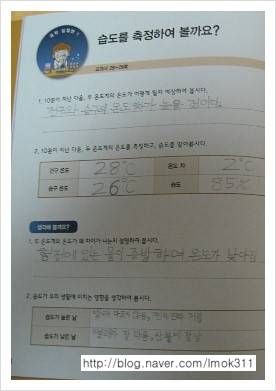 습도를 측정하여 볼까요?
교과서 28~29쪽
1. 10분이 지난 다음, 두 온도계의 온도가 어떻게 될지 예상하여 봅시다.
건구와 습구의 온도 차가 높을 것이다.
2. 10분이 지난 다음, 두 온도계의 온도를 측정하고, 습도를 알아봅시다.
건구 온도 28℃ 온도 차 2℃
습구 온도 26℃ 습도 85%
생각해 볼까요?
1. 두 온도계의 온도가 왜 차이가 나는지 설명하여 봅시다.
헝겊에 있는 물이 증발하며 온도가 낮아짐
2. 습도가 우리 생활에 미치는 영향을 생각하여 봅시다.
습도가 높은 날 빨래가 마르지 않음,
습도가 낮은 날 빨래가 잘 마름, 산불이 잘 남
http://blog.naver.com/lmok311